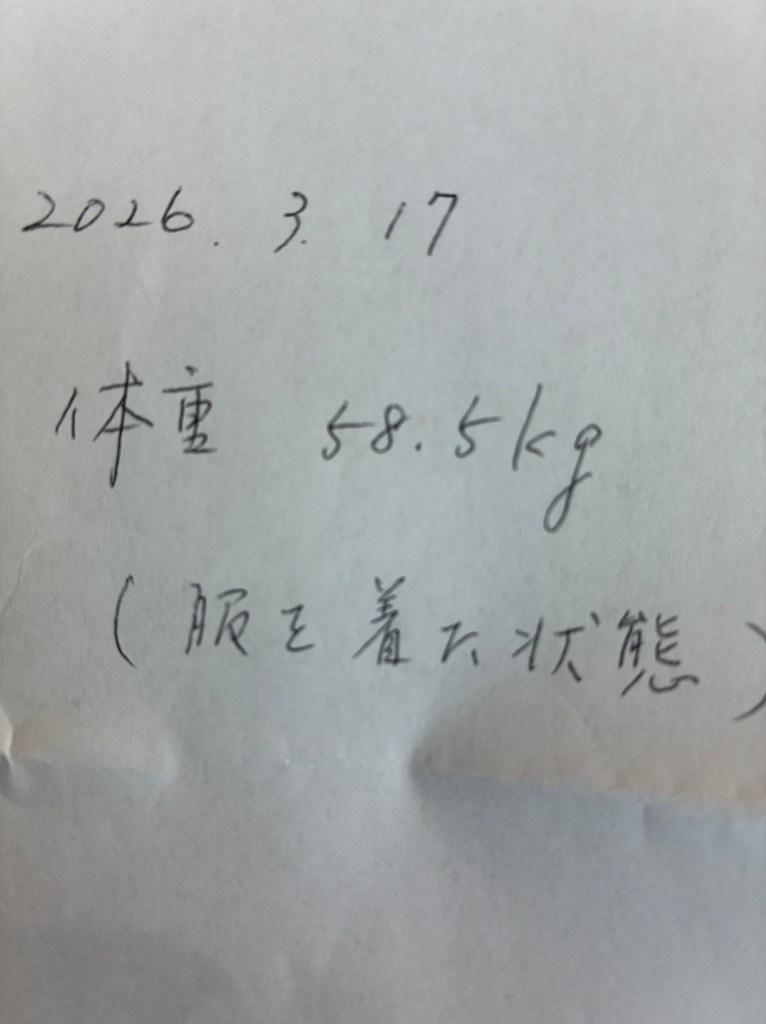 2026. 3. 17
体重 58.5kg
(服を着た状態)